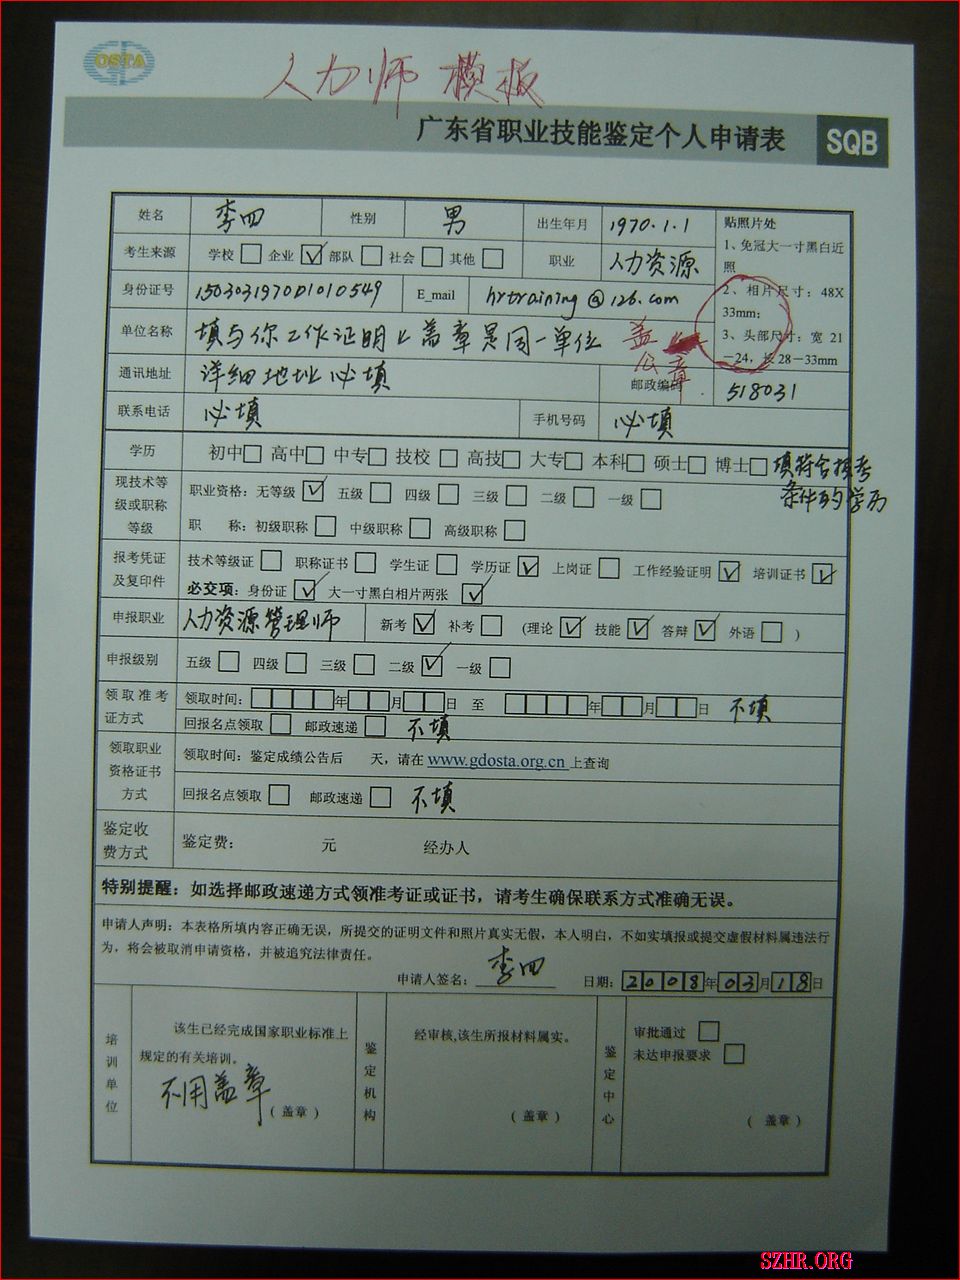 OSTA
人力师 模板
广东省职业技能鉴定个人申请表 SQB
姓名 李四 性别 男 出生年月 1970.1.1 贴照片处
1、免冠大一寸黑白近照
2、相片尺寸：48X33mm；
3、头部尺寸：宽 21－24，长 28－33mm
考生来源 学校□ 企业☑ 部队□ 社会□ 其他□ 职业 人力资源
身份证号 150303197001010549 E_mail hrtraining@126.com
单位名称 填与你工作证明上盖章是同一单位 盖公章
通讯地址 详细地址必填 邮政编码 518031
联系电话 必填 手机号码 必填
学历 初中□ 高中□ 中专□ 技校□ 高技□ 大专□ 本科□ 硕士□ 博士□ 填符合报考
条件的学历
现技术等级或职称等级 职业资格：无等级☑ 五级□ 四级□ 三级□ 二级□ 一级□
职 称：初级职称□ 中级职称□ 高级职称□
报考凭证及复印件 技术等级证□ 职称证书□ 学生证□ 学历证☑ 上岗证□ 工作经验证明☑ 培训证书☑
必交项：身份证☑ 大一寸黑白相片两张☑
申报职业 人力资源管理师 新考☑ 补考□ (理论☑ 技能☑ 答辩☑ 外语□ )
申报级别 五级□ 四级□ 三级□ 二级☑ 一级□
领取准考证方式 领取时间：□□□□年□□月□□日 至 □□□□年□□月□□日 不填
回报名点领取□ 邮政速递□ 不填
领取职业资格证书方式 领取时间：鉴定成绩公告后 天，请在 www.gdosta.org.cn 上查询
回报名点领取□ 邮政速递□ 不填
鉴定收费方式 鉴定费： 元 经办人
特别提醒：如选择邮政速递方式领准考证或证书，请考生确保联系方式准确无误。
申请人声明：本表格所填内容正确无误，所提交的证明文件和照片真实无假，本人明白，不如实填报或提交虚假材料属违法行
为，将会被取消申请资格，并被追究法律责任。
申请人签名：李四 日期：2008年03月18日
培训单位 该生已经完成国家职业标准上
规定的有关培训。
不用盖章
（盖章）
鉴定机构 经审核,该生所报材料属实。
（盖章）
鉴定中心 审批通过□
未达申报要求□
（盖章）
SZHR.ORG